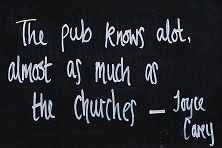 The pub knows alot,
almost as much as
the churches – Joyce
Carey